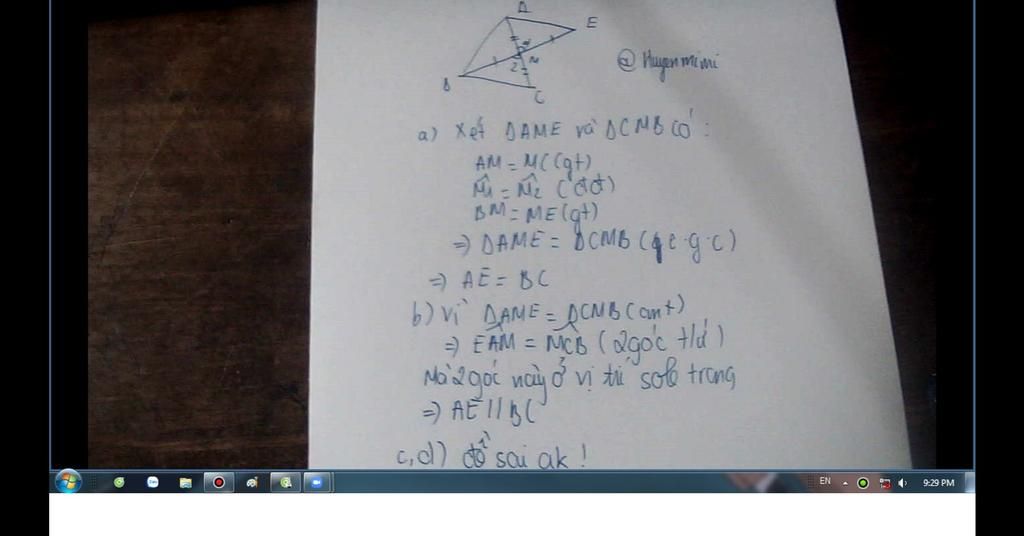 A
E
M
2
B
C
@Huyenmimi
a) Xét ΔAME và ΔCMB có :
AM = MC (gt)
M̂1 = M̂2 (đđ)
BM = ME (gt)
=) ΔAME = ΔCMB ( c.g.c )
=) AE = BC
b) Vì ΔAME = ΔCMB (cmt)
=) EÂM = MĈB ( 2 góc t/ứ )
Mà 2 góc này ở vị trí sole trong
=) AE // BC
c,d) đề sai ak !
EN 9:29 PM